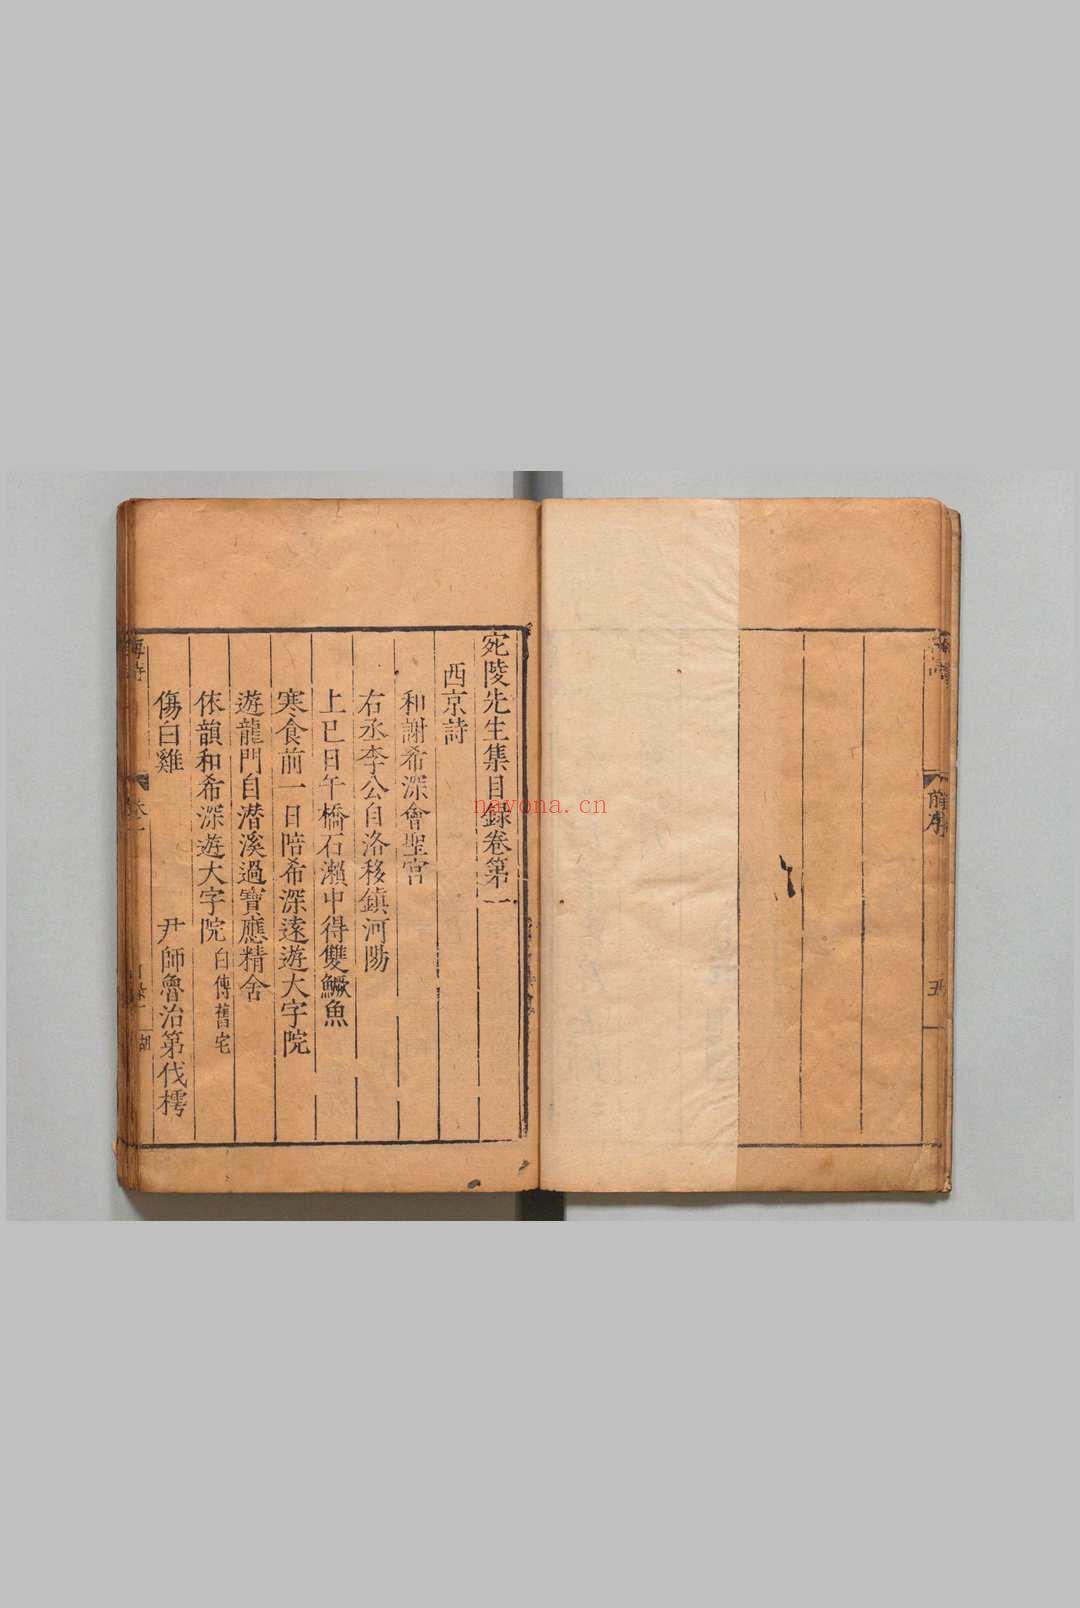 前序
五
宛陵先生集目録卷第一
西京詩
和謝希深會聖宫
右丞李公自洛移鎮河陽
上巳日午橋石瀬中得雙鱖魚
寒食前一日陪希深逺遊大字院
遊龍門自潜溪過寶應精舍
依韻和希深遊大字院 白傳舊宅
傷白雞 尹師魯治第伐樗
梅詩
胡
navona.cn